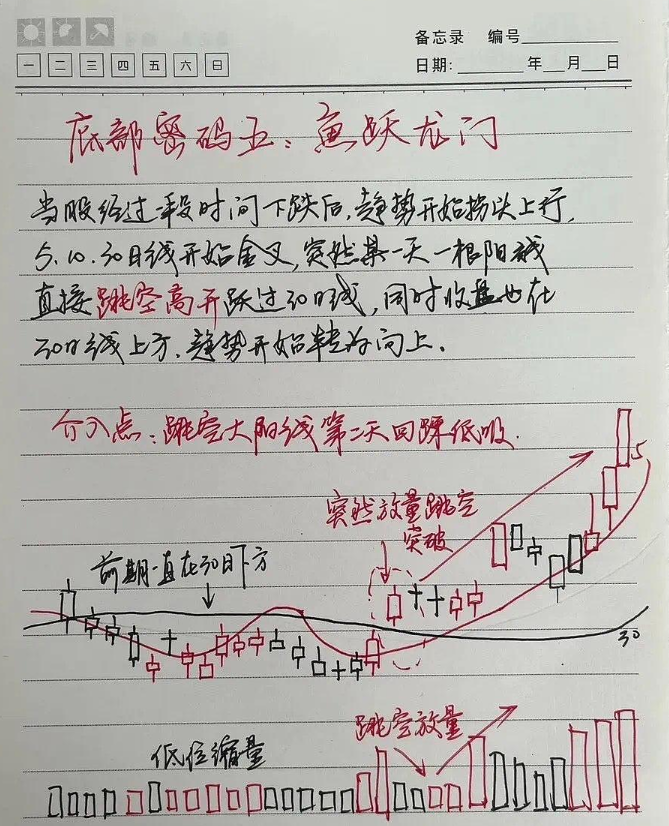 备忘录 编号
一 二 三 四 五 六 日
日期: 年 月 日
底部密码五：鱼跃龙门
当股经过一段时间下跌后,趋势开始拐头上行,
5.10.30日线开始金叉,突然某一天一根阳线
直接跳空高开跃过30日线,同时收盘也在
30日线上方.趋势开始转为向上.
介入点：跳空大阳线第二天回踩低吸.
突然放量跳空
突破
5
前期一直在30日下方
30
跳空放量
低位缩量